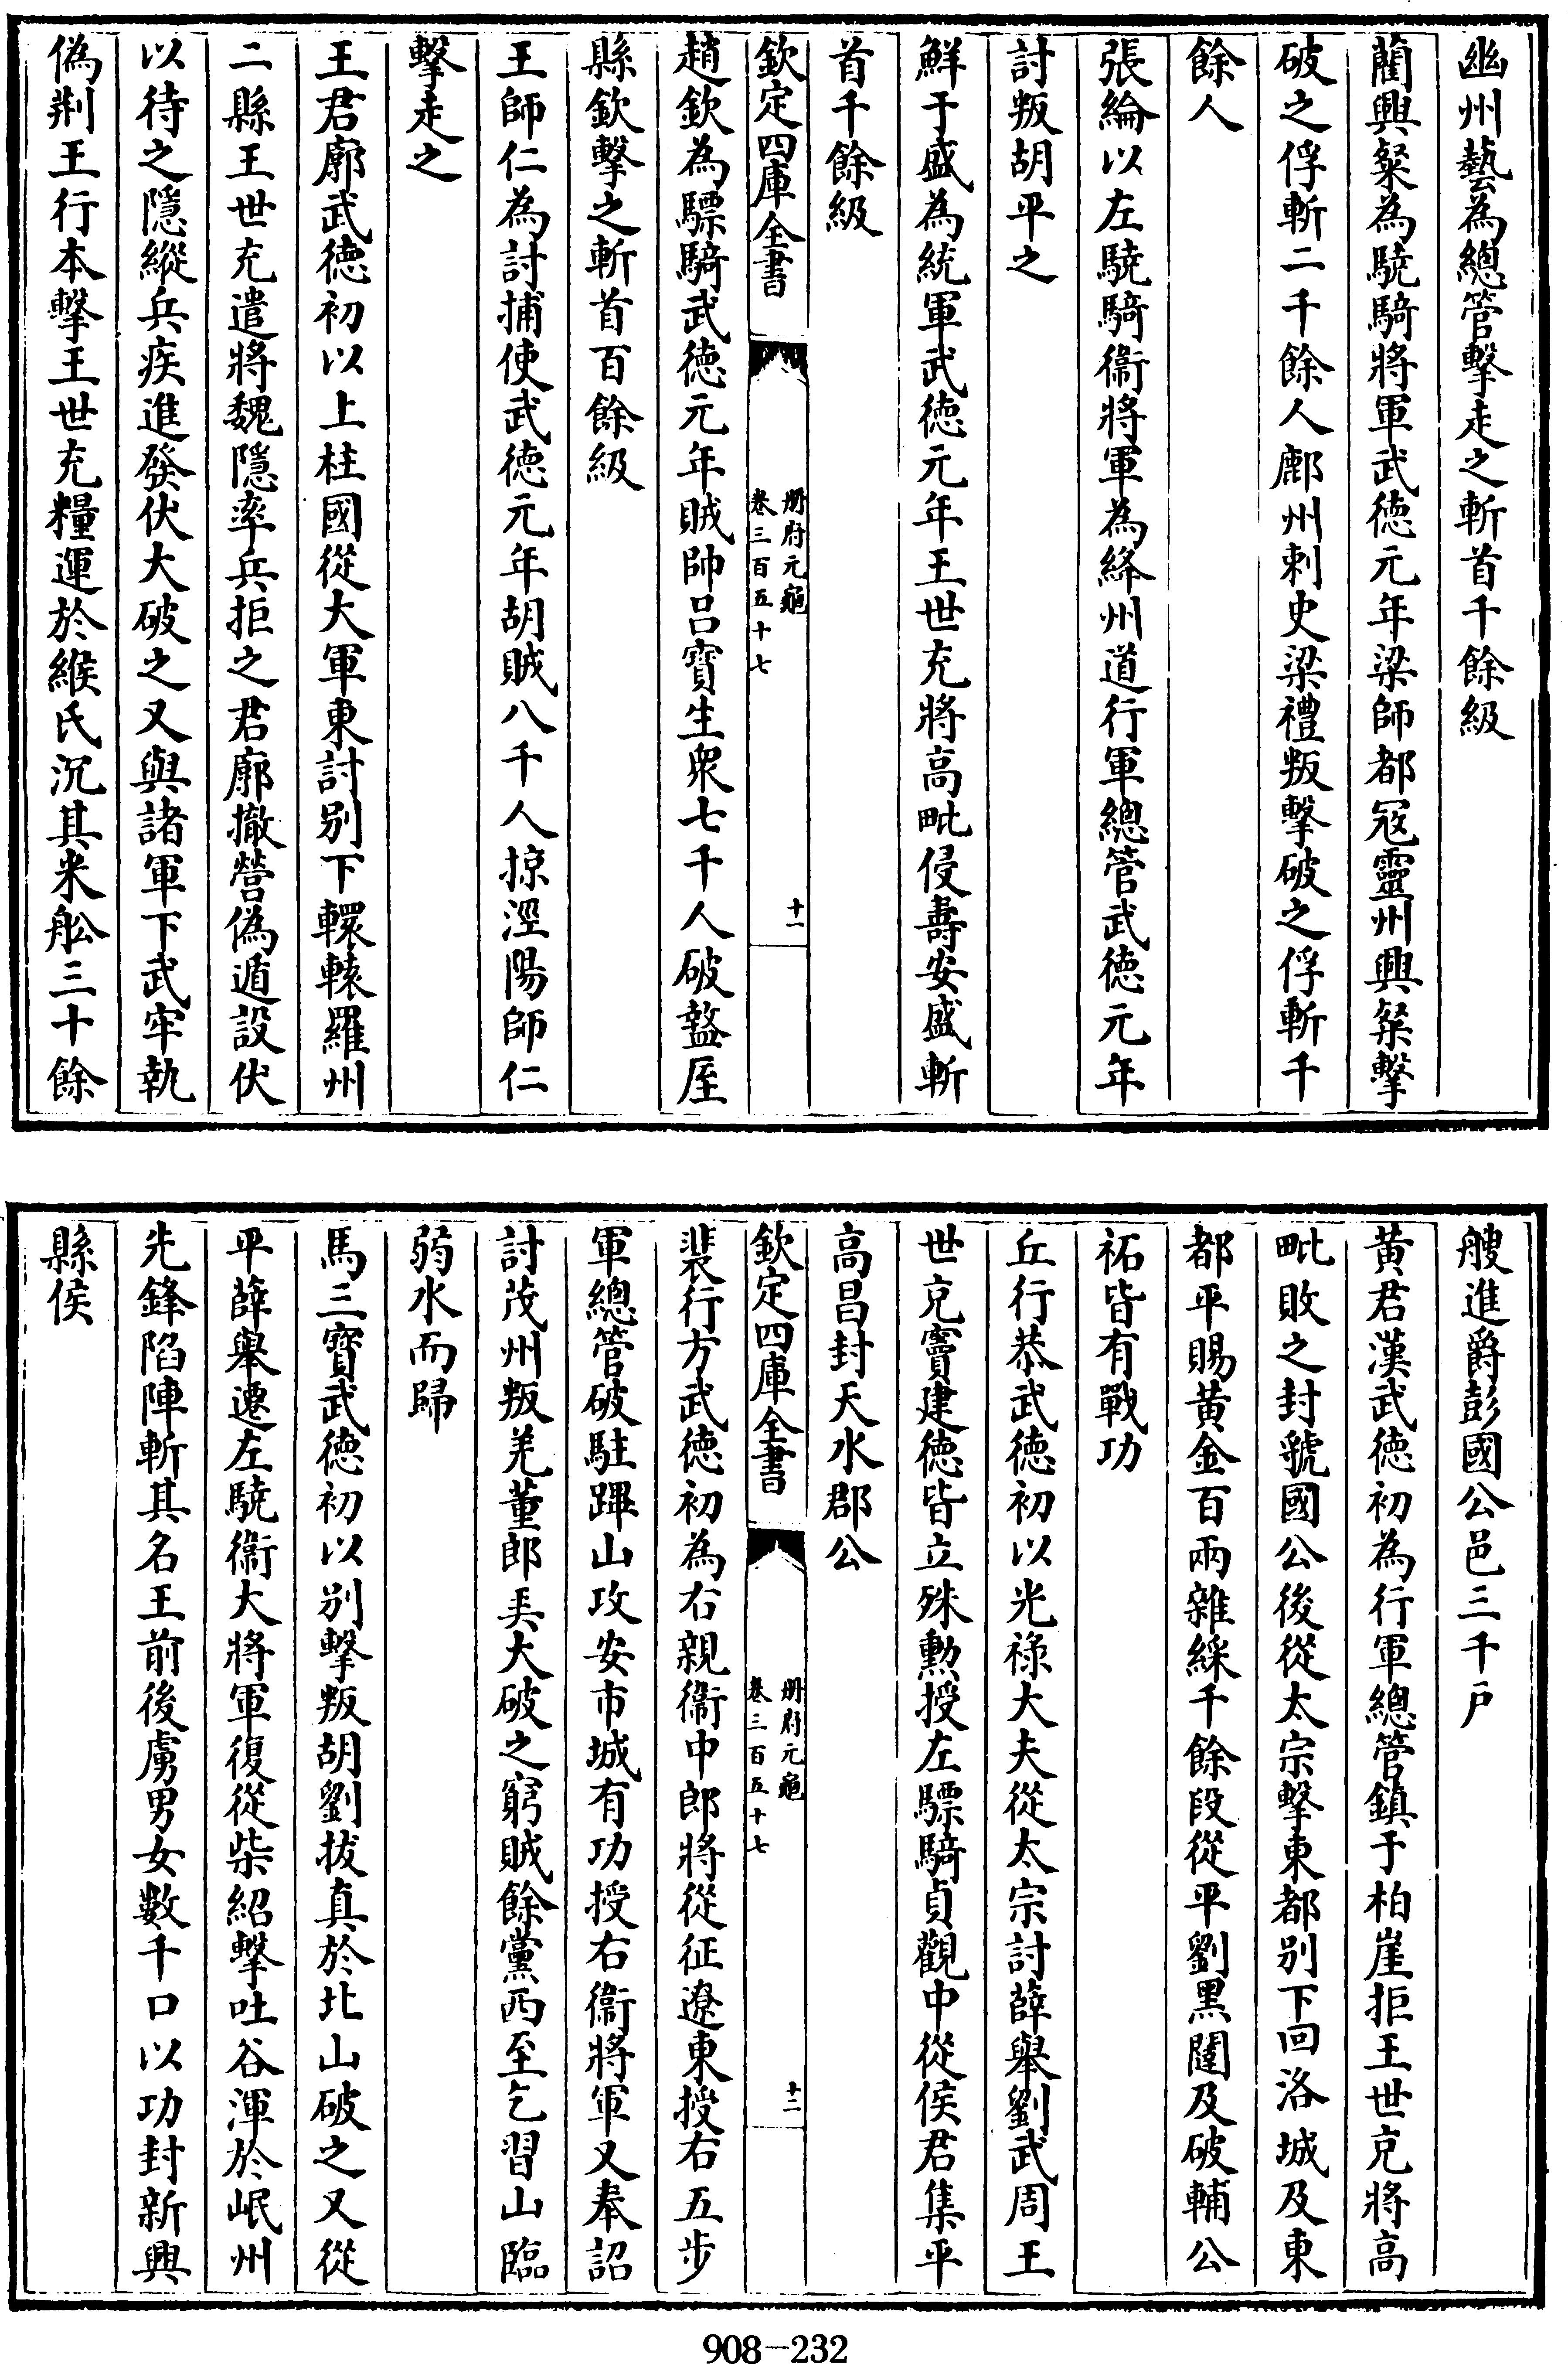 幽州藝為總管擊走之斬首千餘級
藺興粲為驍騎將軍武徳元年梁師都冦靈州興粲擊
破之俘斬二千餘人鄜州刺史梁禮叛擊破之俘斬千
餘人
張綸以左驍騎衞將軍為絳州道行軍總管武徳元年
討叛胡平之
鮮于盛為統軍武徳元年王世充將高毗侵壽安盛斬
首千餘級
欽定四庫全書
册府元龜
卷三百五十七
十一
趙欽為驃騎武徳元年賊帥吕寳生衆七千人破盩厔
縣欽擊之斬首百餘級
王師仁為討捕使武徳元年胡賊八千人掠涇陽師仁
擊走之
王君廓武徳初以上柱國從大軍東討别下轘轅羅州
二縣王世充遣將魏隱率兵拒之君廓撤營偽遁設伏
以待之隱縱兵疾進發伏大破之又與諸軍下武牢執
偽荆王行本擊王世充糧運於緱氏沉其米舩三十餘
艘進爵彭國公邑三千户
黄君漢武徳初為行軍總管鎮于柏崖拒王世充將高
毗敗之封虢國公後從太宗擊東都别下回洛城及東
都平賜黄金百兩雜綵千餘段從平劉黒闥及破輔公
祏皆有戰功
丘行恭武徳初以光禄大夫從太宗討薛舉劉武周王
世充竇建徳皆立殊勲授左驃騎貞觀中從侯君集平
高昌封天水郡公
欽定四庫全書
册府元龜
卷三百五十七
十二
裴行方武徳初為右親衞中郎將從征遼東授右五步
軍總管破駐蹕山攻安市城有功授右衞將軍又奉詔
討茂州叛羌董郎弄大破之窮賊餘黨西至乞習山臨
弱水而歸
馬三寳武徳初以别擊叛胡劉拔真於北山破之又從
平薛舉遷左驍衞大將軍復從柴紹擊吐谷渾於岷州
先鋒陷陣斬其名王前後虜男女數千口以功封新興
縣侯
908-232